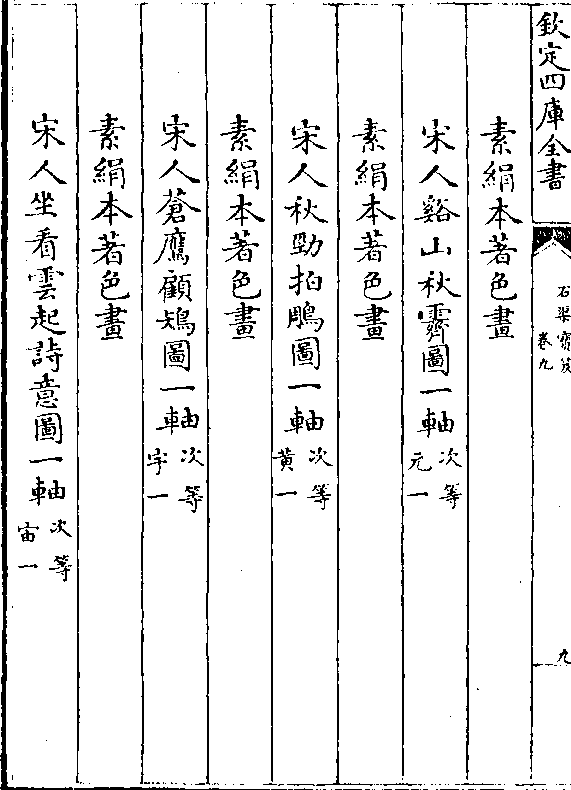 欽定四庫全書
石渠寶笈
卷九
九
素絹本著色畫
宋人谿山秋霽圖一軸次等元一
素絹本著色畫
宋人秋勁拍鵰圖一軸次等黃一
素絹本著色畫
宋人蒼鷹顧鴙圖一軸次等宇一
素絹本著色畫
宋人坐看雲起詩意圖一軸次等宙一